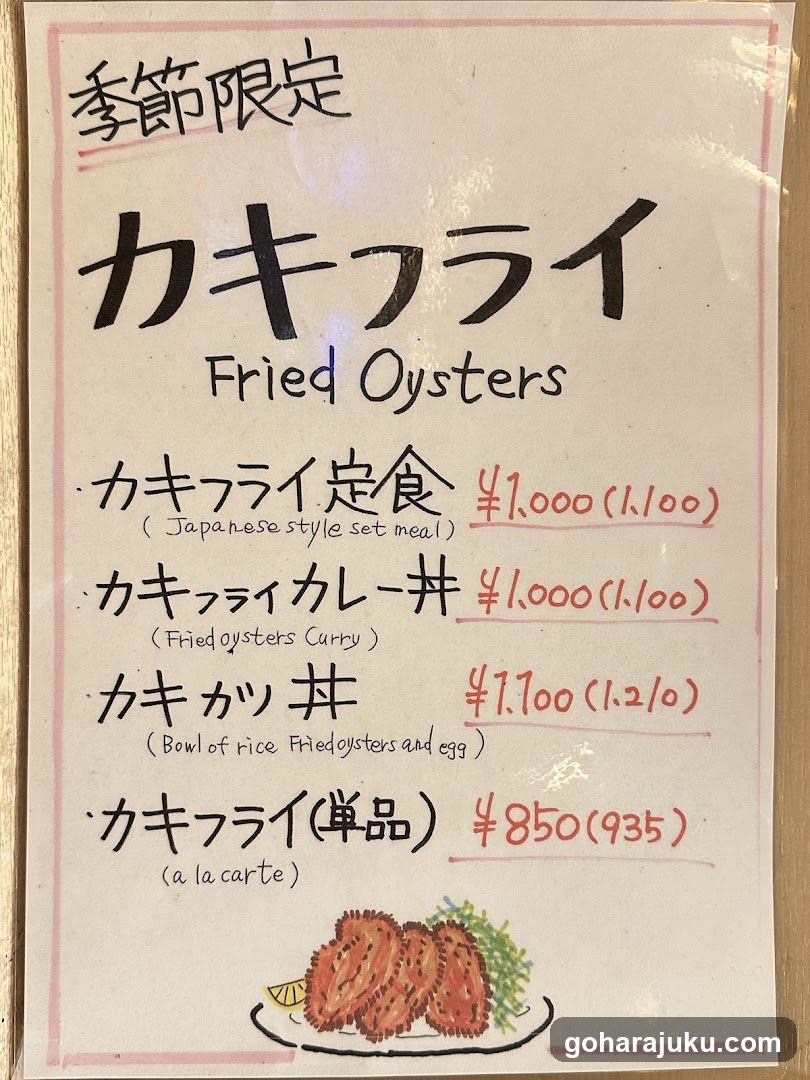 季節限定
カキフライ
Fried Oysters
・カキフライ定食 ¥1.000(1.100)
( Japanese style set meal)
・カキフライカレー丼 ¥1.000(1.100)
(Fried oysters Curry)
カキカツ丼 ¥1.100(1.210)
(Bowl of rice Fried oysters and egg)
・カキフライ(単品) ¥850(935)
(a la carte)
goharajuku.com